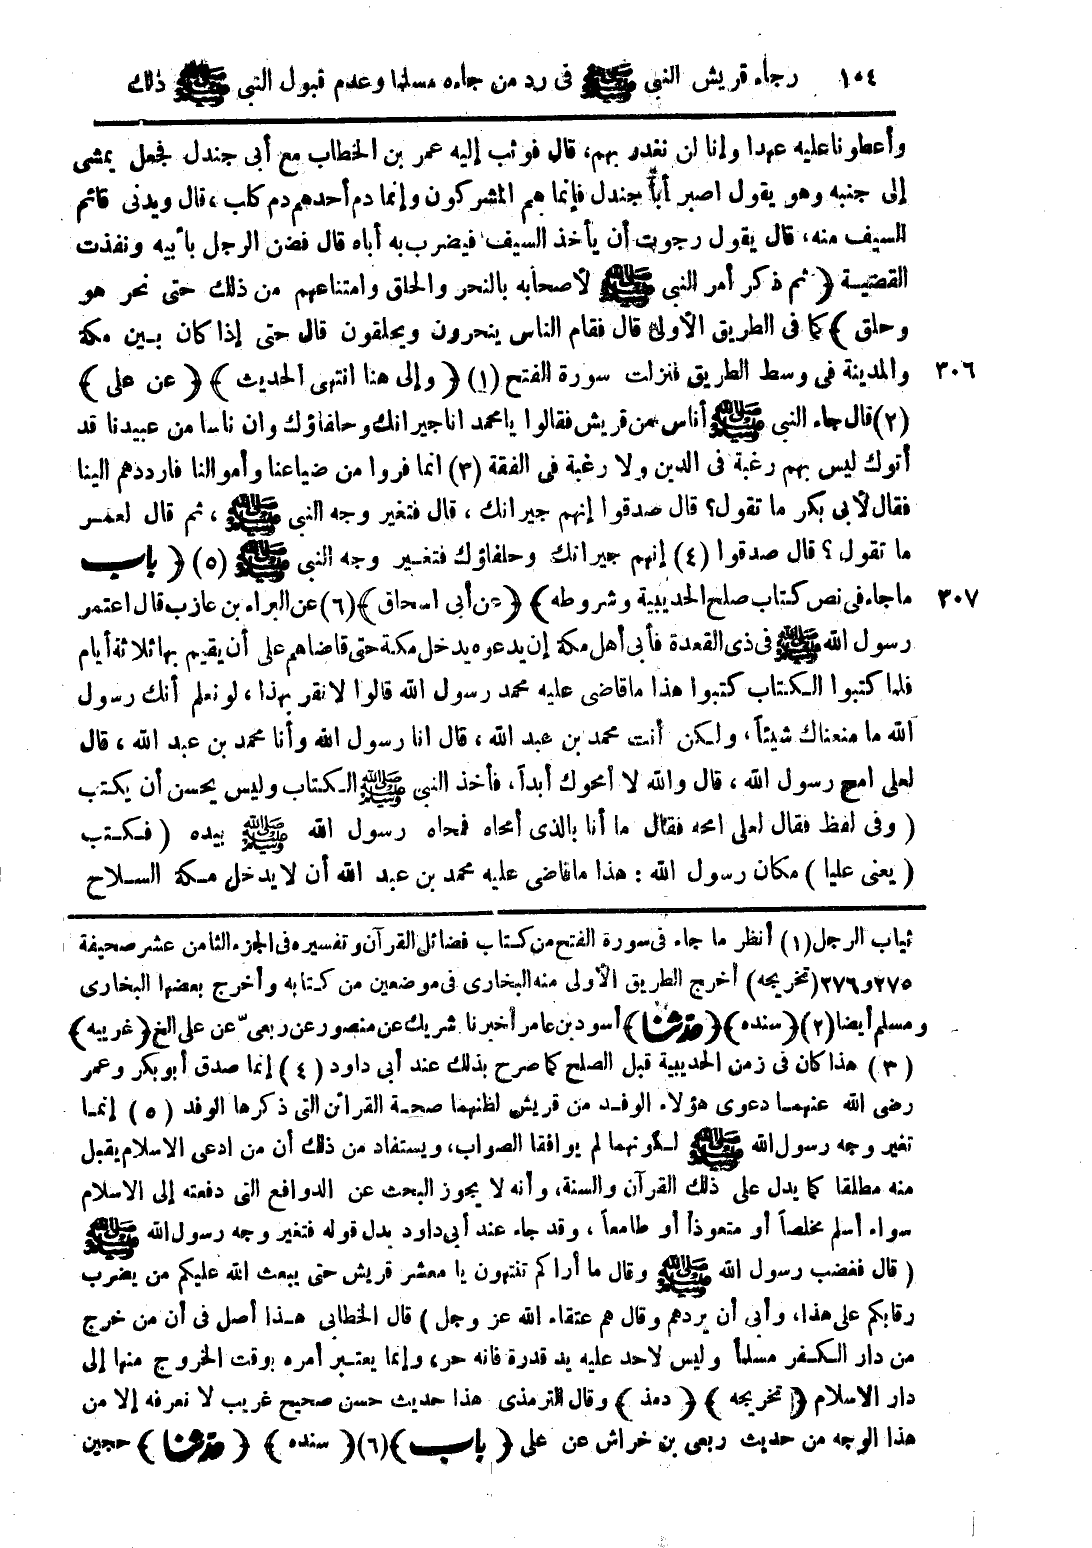 ١٠٤ رجاء قريش النبي ﷺ في رد من جاءه مسلما وعدم قبول النبي ﷺ ذلك
وأعطوناعليه عهدا وإنا لن نغدر بهم، قال فوثب إليه عمر بن الخطاب مع أبي جندل فجعل يمشى
إلى جنبه وهو يقول اصبر أباً جندل فإنما هم المشركون وإنما دم أحدهم دم كلب، قال ويدنى قائم
السيف منه، قال يقول رجوت أن يأخذ السيف فيضرب به أباه قال فضن الرجل بأبيه ونفذت
القضية ﴿ ثم ذكر أمر النبي ﷺ لأصحابه بالنحر والحلق وامتناعهم من ذلك حتى نحر هو
وحلق ﴾ كما في الطريق الأولى قال فقام الناس ينحرون ويحلقون قال حتى إذا كان بين مكة
٣٠٦ والمدينة في وسط الطريق فنزلت سورة الفتح (١) ﴿ وإلى هنا انتهى الحديث ﴾ ﴿ عن على ﴾
(٢) قال جاء النبي ﷺ أناس من قريش فقالوا يامحمد اناجيرانك وحلفاؤك وان ناسا من عبيدنا قد
أتوك ليس بهم رغبة في الدين ولا رغبة في الفقة (٣) انما فروا من ضياعنا وأموالنا فارددهم الينا
فقال لأبي بكر ما تقول؟ قال صدقوا إنهم جيرانك، قال فتغير وجه النبي ﷺ، ثم قال لعمر
ما تقول؟ قال صدقوا (٤) إنهم جيرانك وحلفاؤك فتغير وجه النبي ﷺ (٥) ﴿ باب
٣٠٧ ماجاء في نص كتاب صلح الحديبية وشروطه ﴾ ﴿ عن أبى اسحاق ﴾ (٦) عن البراء بن عازب قال اعتمر
رسول الله ﷺ في ذي القعدة فأبى أهل مكة إن يدعوه يدخل مكة حتى قاضاهم على أن يقيم بها ثلاثة أيام
فلما كتبوا الكتاب كتبوا هذا ماقاضى عليه محمد رسول الله قالوا لا نقر بهذا، لو نعلم أنك رسول
الله ما منعناك شيئاً، ولكن أنت محمد بن عبد الله، قال انا رسول الله وأنا محمد بن عبد الله، قال
لعلي امح رسول الله، قال والله لا أمحوك أبداً، فأخذ النبي ﷺ الكتاب وليس يحسن أن يكتب
( وفى لفظ فقال لعلى امحه فقال ما أنا بالذى أمحاه فمحاه رسول الله ﷺ بيده ( فكتب
( يعنى عليا ) مكان رسول الله : هذا ماقاضى عليه محمد بن عبد الله أن لا يدخل مكة السلاح
ثياب الرجل (١) أنظر ما جاء في سورة الفتح من كتاب فضائل القرآن وتفسيره في الجزء الثامن عشر صحيفة
٢٧٥ و ٢٧٦ (تخريجه) أخرج الطريق الأولى منه البخارى في موضعين من كتابه وأخرج بعضها البخارى
ومسلم أيضا (٢) ﴿ سنده ﴾ ﴿ حدثنا ﴾ أسود بن عامر أخبرنا شريك عن منصور عن ربعىّ عن على الخ ﴿ غريبه ﴾
(٣) هذا كان في زمن الحديبية قبل الصلح كما صرح بذلك عند أبي داود (٤) إنما صدق أبوبكر وعمر
رضى الله عنهما دعوى هؤلاء الوفد من قريش لظنهما صحة القرائن التى ذكرها الوفد (٥) إنما
تغير وجه رسول الله ﷺ لكونهما لم يوافقا الصواب، ويستفاد من ذلك أن من ادعى الاسلام يقبل
منه مطلقا كما يدل على ذلك القرآن والسنة، وأنه لا يجوز البحث عن الدوافع التى دفعته إلى الاسلام
سواء أسلم مخلصاً أو متعوذاً أو طامعاً، وقد جاء عند أبى داود بدل قوله فتغير وجه رسول الله ﷺ
( قال فغضب رسول الله ﷺ وقال ما أراكم تنتهون يا معشر قريش حتى يبعث الله عليكم من يضرب
رقابكم على هذا، وأبى أن يردهم وقال هم عتقاء الله عز وجل ) قال الخطابى هذا أصل في أن من خرج
من دار الكفر مسلماً وليس لاحد عليه يد قدرة فانه حر، وإنما يعتبر أمره بوقت الخروج منها إلى
دار الاسلام ﴿ تخريجه ﴾ ﴿ د مذ ﴾ وقال الترمذى هذا حديث حسن صحيح غريب لا نعرفه إلا من
هذا الوجه من حديث ربعى بن خراش عن على ﴿ باب ﴾ (٦) ﴿ سنده ﴾ ﴿ حدثنا ﴾ حجين